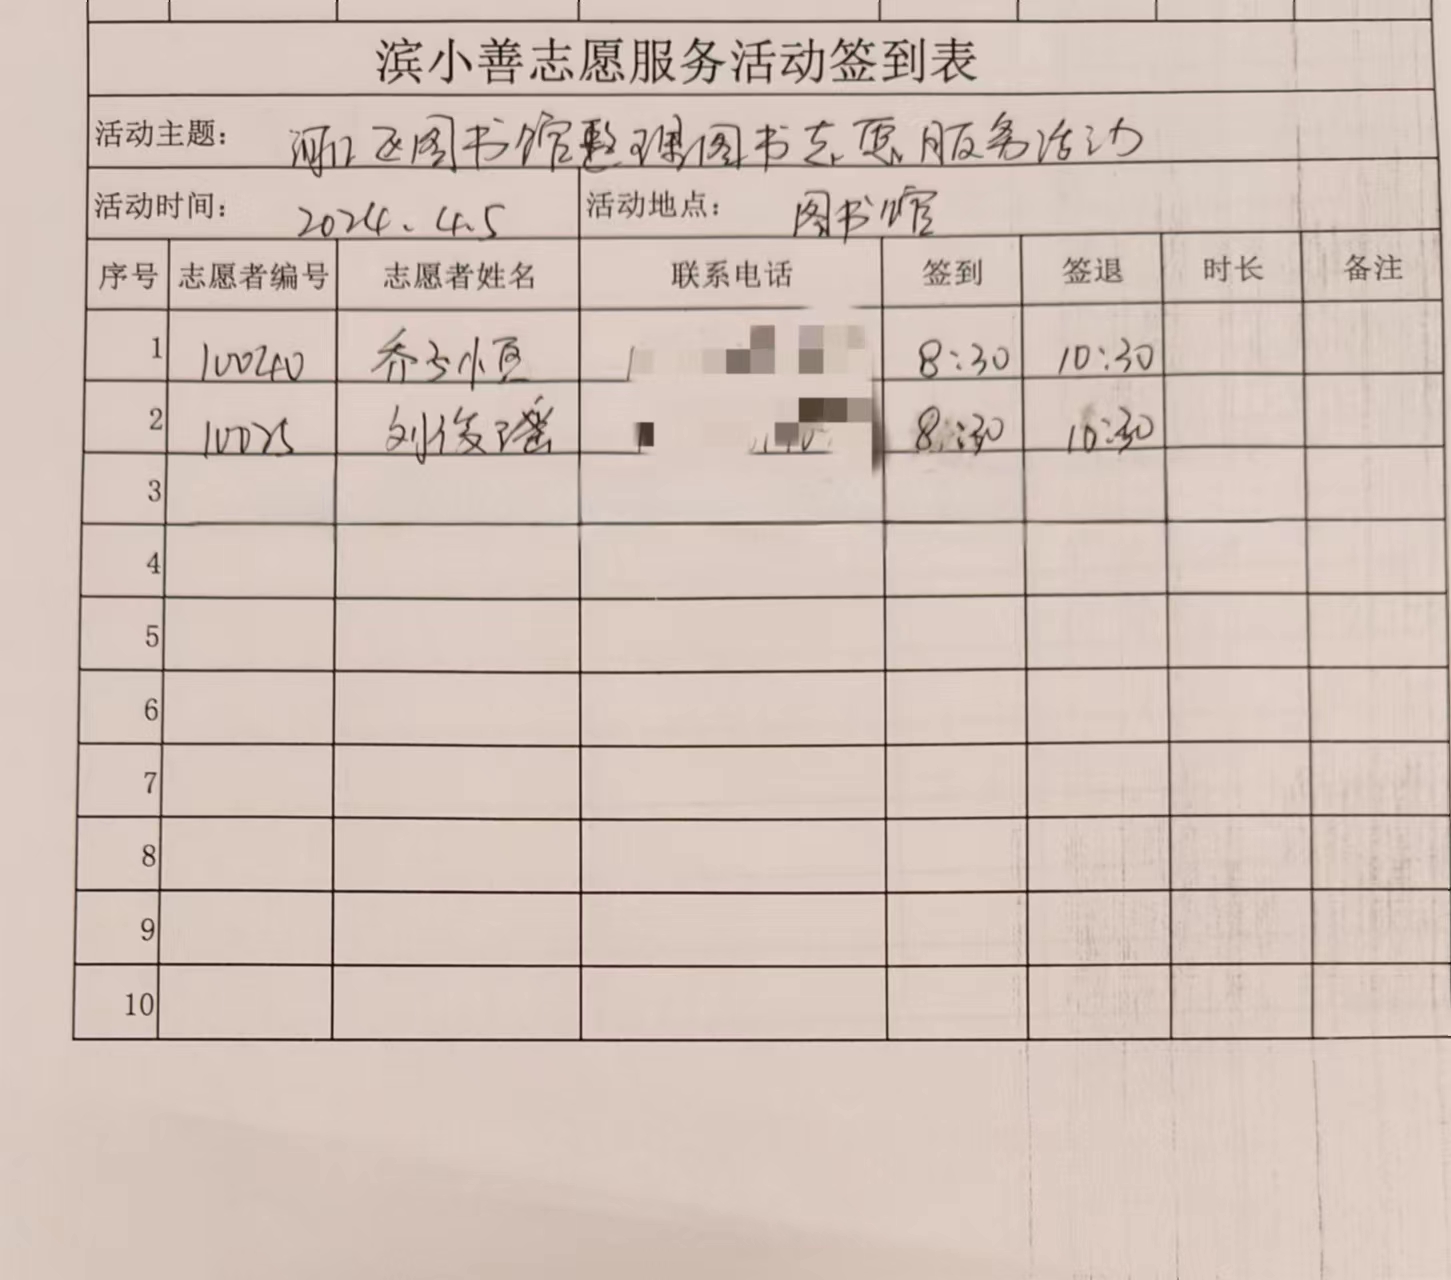 滨小善志愿服务活动签到表
活动主题： 河口区图书馆整理图书志愿服务活动
活动时间： 2024.4.5 活动地点： 图书馆
序号 志愿者编号 志愿者姓名 联系电话 签到 签退 时长 备注
1 100240 乔子恒 8:30 10:30
2 10025 刘俊瑶 8:30 10:30
3
4
5
6
7
8
9
10